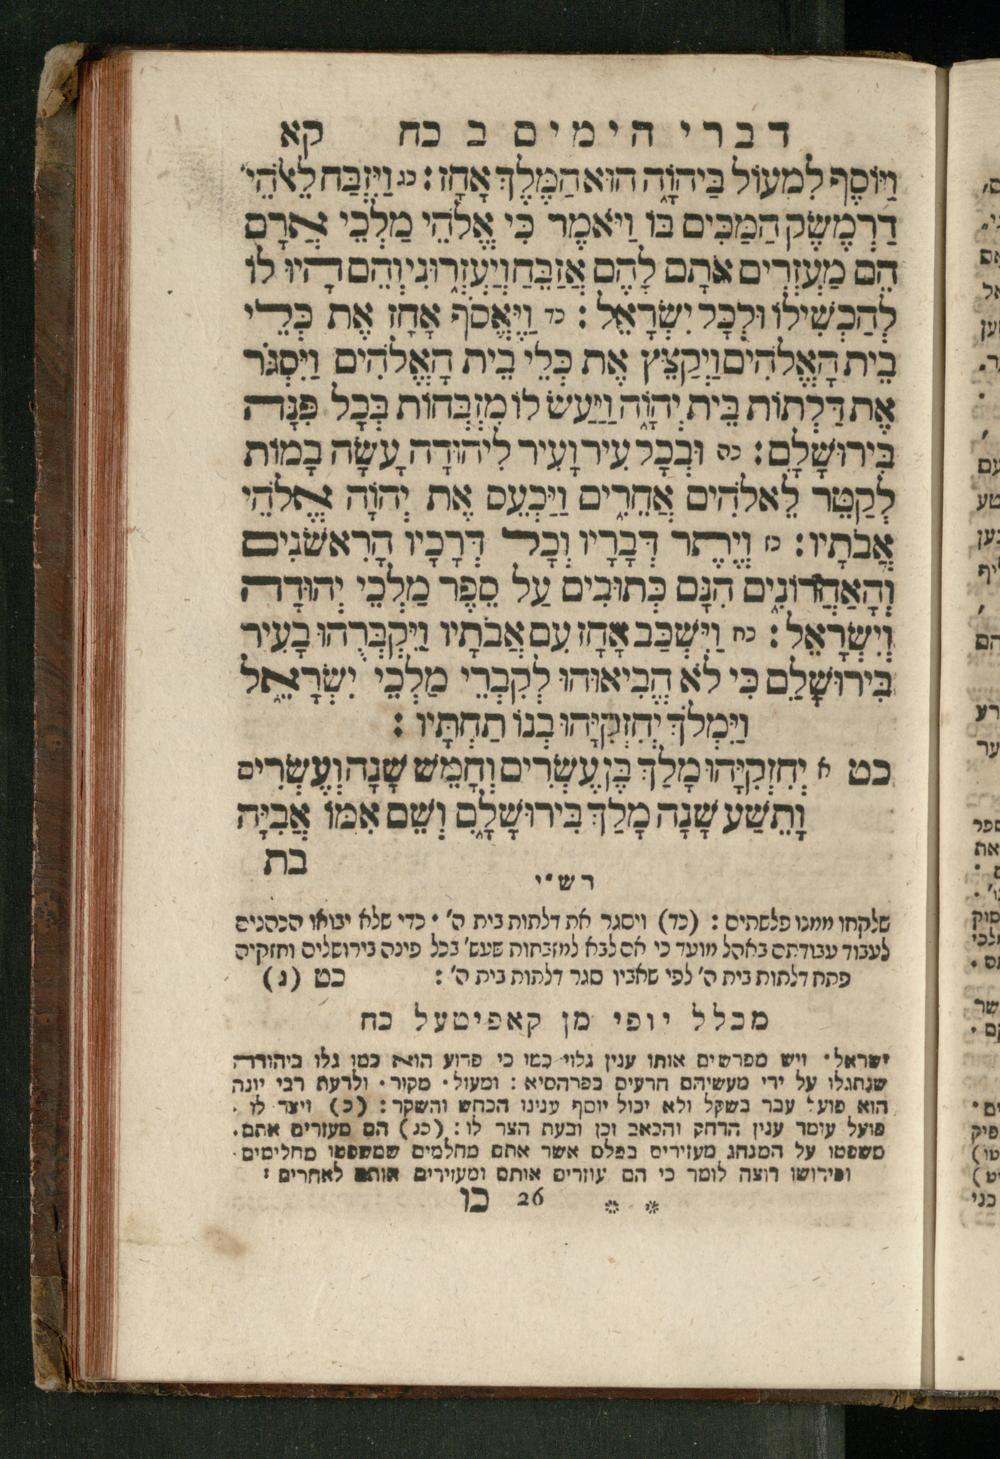 דברי הימים ב כח קא
וַיּוֹסֶף לִמְעוֹל בַּיהוָֹה הוּא הַמֶּלֶךְ אָחָז׃ כג וַיִּזְבַּח לֵאלֹהֵי
דַרְמֶשֶׂק הַמַּכִּים בּוֹ וַיֹּאמֶר כִּי אֱלֹהֵי מַלְכֵי אֲרָם
הֵם מַעְזְרִים אֹתָם לָהֶם אֲזַבֵּחַ וְיַעְזְרוּנִי וְהֵם הָיוּ לוֹ
לְהַכְשִׁילוֹ וּלְכָל יִשְׂרָאֵל׃ כד וַיֶּאֱסֹף אָחָז אֶת כְּלֵי
בֵית הָאֱלֹהִים וַיְקַצֵּץ אֶת כְּלֵי בֵית הָאֱלֹהִים וַיִּסְגֹּר
אֶת דַּלְתוֹת בֵּית יְהוָֹה וַיַּעַשׂ לוֹ מִזְבְּחוֹת בְּכָל פִּנָּה
בִּירוּשָׁלָםִ׃ כה וּבְכָל עִיר וָעִיר לִיהוּדָה עָשָׂה בָמוֹת
לְקַטֵּר לֵאלֹהִים אֲחֵרִים וַיַּכְעֵס אֶת יְהוָֹה אֱלֹהֵי
אֲבֹתָיו׃ כו וְיֶתֶר דְּבָרָיו וְכָל דְּרָכָיו הָרִאשֹׁנִים
וְהָאַחֲרוֹנִים הִנָּם כְּתוּבִים עַל סֵפֶר מַלְכֵי יְהוּדָה
וְיִשְׂרָאֵל׃ כח וַיִּשְׁכַּב אָחָז עִם אֲבֹתָיו וַיִּקְבְּרֻהוּ בָעִיר
בִּירוּשָׁלִַם כִּי לֹא הֱבִיאוּהוּ לְקִבְרֵי מַלְכֵי יִשְׂרָאֵל
וַיִּמְלֹךְ יְחִזְקִיָּהוּ בְנוֹ תַּחְתָּיו׃
כט א יְחִזְקִיָּהוּ מָלַךְ בֶּן עֶשְׂרִים וְחָמֵשׁ שָׁנָה וְעֶשְׂרִים
וָתֵשַׁע שָׁנָה מָלַךְ בִּירוּשָׁלָםִ וְשֵׁם אִמּוֹ אֲבִיָּה
בת
רש״י
שלקחו ממנו פלשתים : (כד) ויסגר את דלתות בית ה' · כדי שלא יבואו הכהנים
לעבוד עבודתם באהל מועד כי אם לבא למזבחות שעש' בכל פינה בירושלים וחזקיה
פתח דלתות בית ה' לפי שאביו סגר דלתות בית ה' : כט (ג)
מכלל יופי מן קאפיטעל כח
ישראל· ויש מפרשים אותו ענין גלוי כמו כי פרוע הוא כמו גלו ביהודה
שנתגלו על ידי מעשיהם הרעים בפרהסיא : ומעול· מקור· ולדעת רבי יונה
הוא פועל עבר בשקל ולא יכול יוסף ענינו הכחש והשקר : (כ) ויצר לו ·
פועל עומד ענין הדחק והכאב וכן ובעת הצר לו : (כג) הם מעזרים אתם·
משפטו על המנהג מעזירים בפלס אשר אתם מחלמים שמשפטו מחלימים·
ופירושו רוצה לומר כי הם עוזרים אותם ומעזירים אותם לאחרים :
26 כו